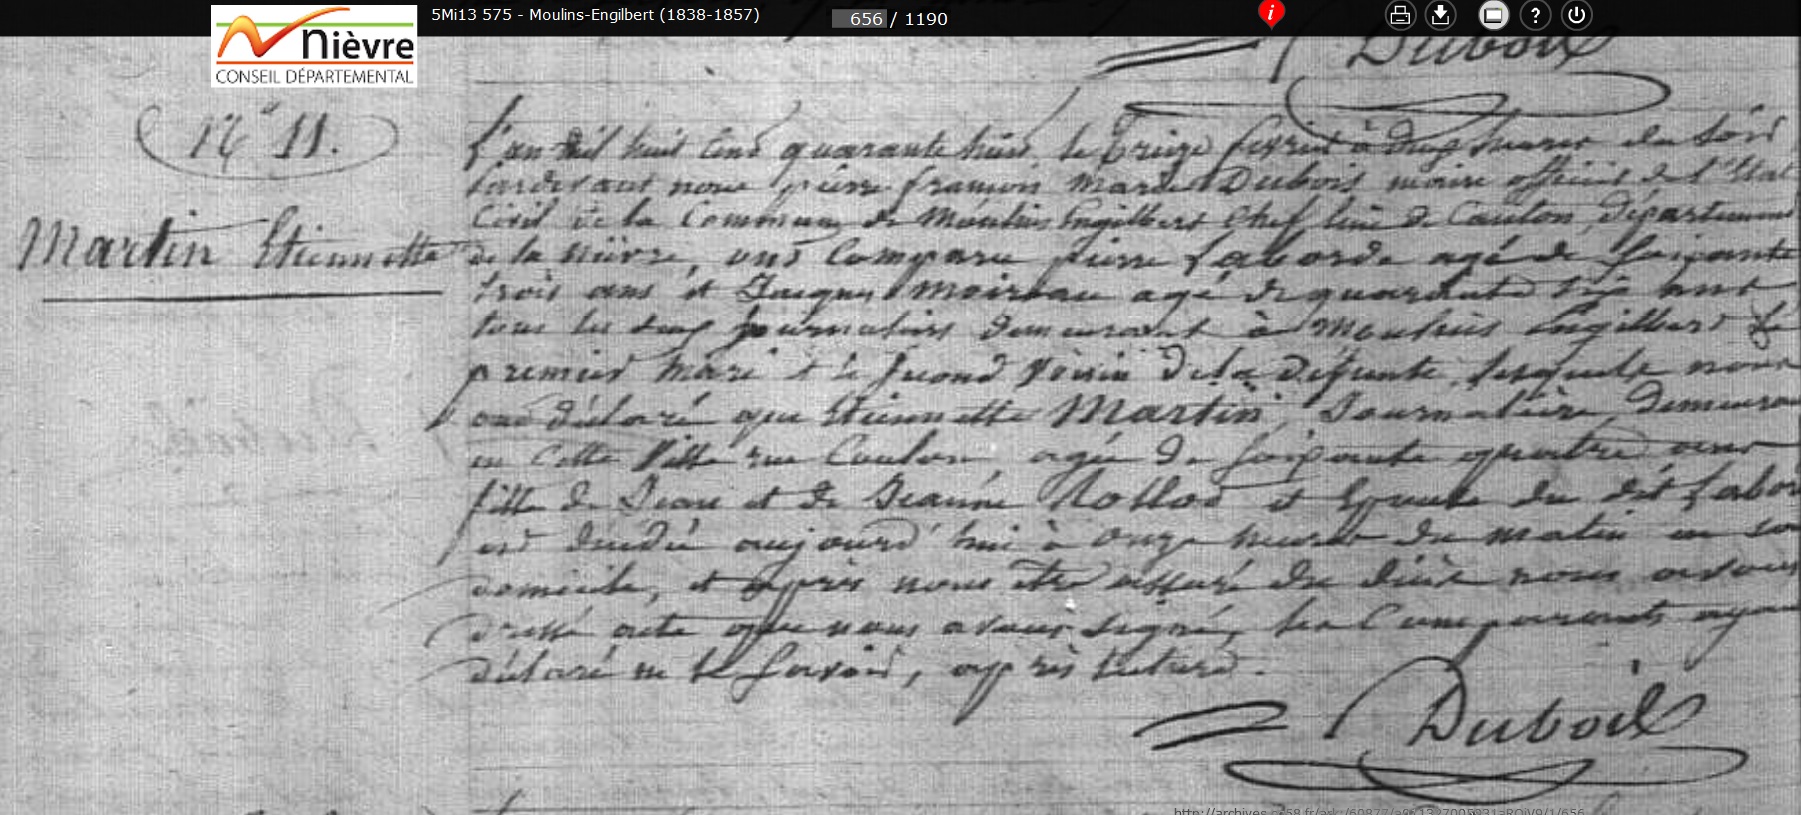 5Mi13 575 - Moulins-Engilbert (1838-1857)
656 / 1190
Nièvre
CONSEIL DÉPARTEMENTAL
Dubois
N° 11.
Martin Etiennette
L'an mil huit cent quarante huit, le treize fevrier à deux heures du soir
pardevant nous pierre françois marie Dubois maire officier de l'Etat
Civil de la Commune de Moulins Engilbert Chef lieu de Canton, département
de la nièvre, ont comparu pierre Laborde agé de soixante
trois ans et Jacques Moireau agé de quarante six ans
tous les deux journaliers demeurant à Moulins Engilbert le
premier mari et le second voisin de la défunte, lesquels nous
ont déclaré que Etiennette Martin, Journalière, demeurant
en cette Ville rue Coulon, agée de soixante quatre ans
fille de Jean et de Jeanne Rollot et Epouse du dit Labor
est décédée aujourd'hui à onze heures du matin en son
domicile, et après nous être assuré du décès nous avons
dressé acte que nous avons signé, les Comparants ayant
déclaré ne le savoir, après lecture.
Dubois